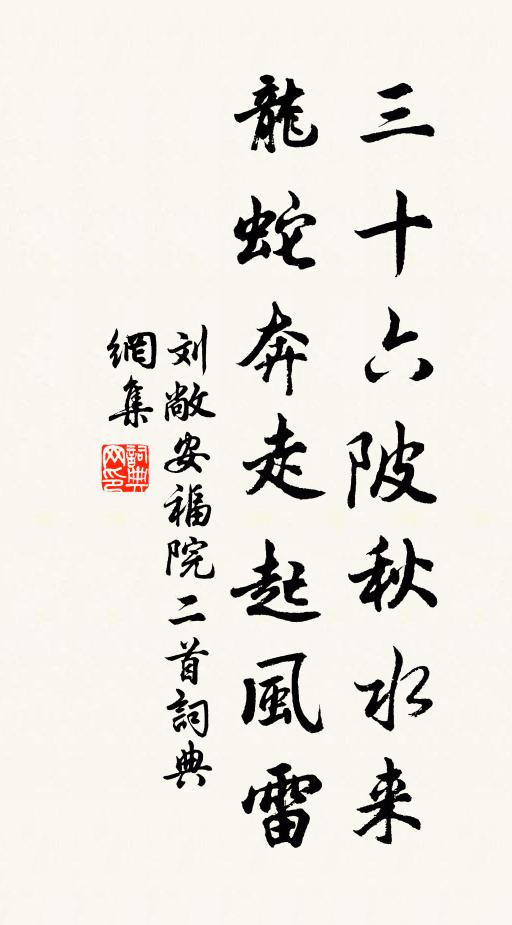 三十六陂秋水来
龍蛇奔走起風雷
刘敞安福院二首詞典
網集
詞典
网印